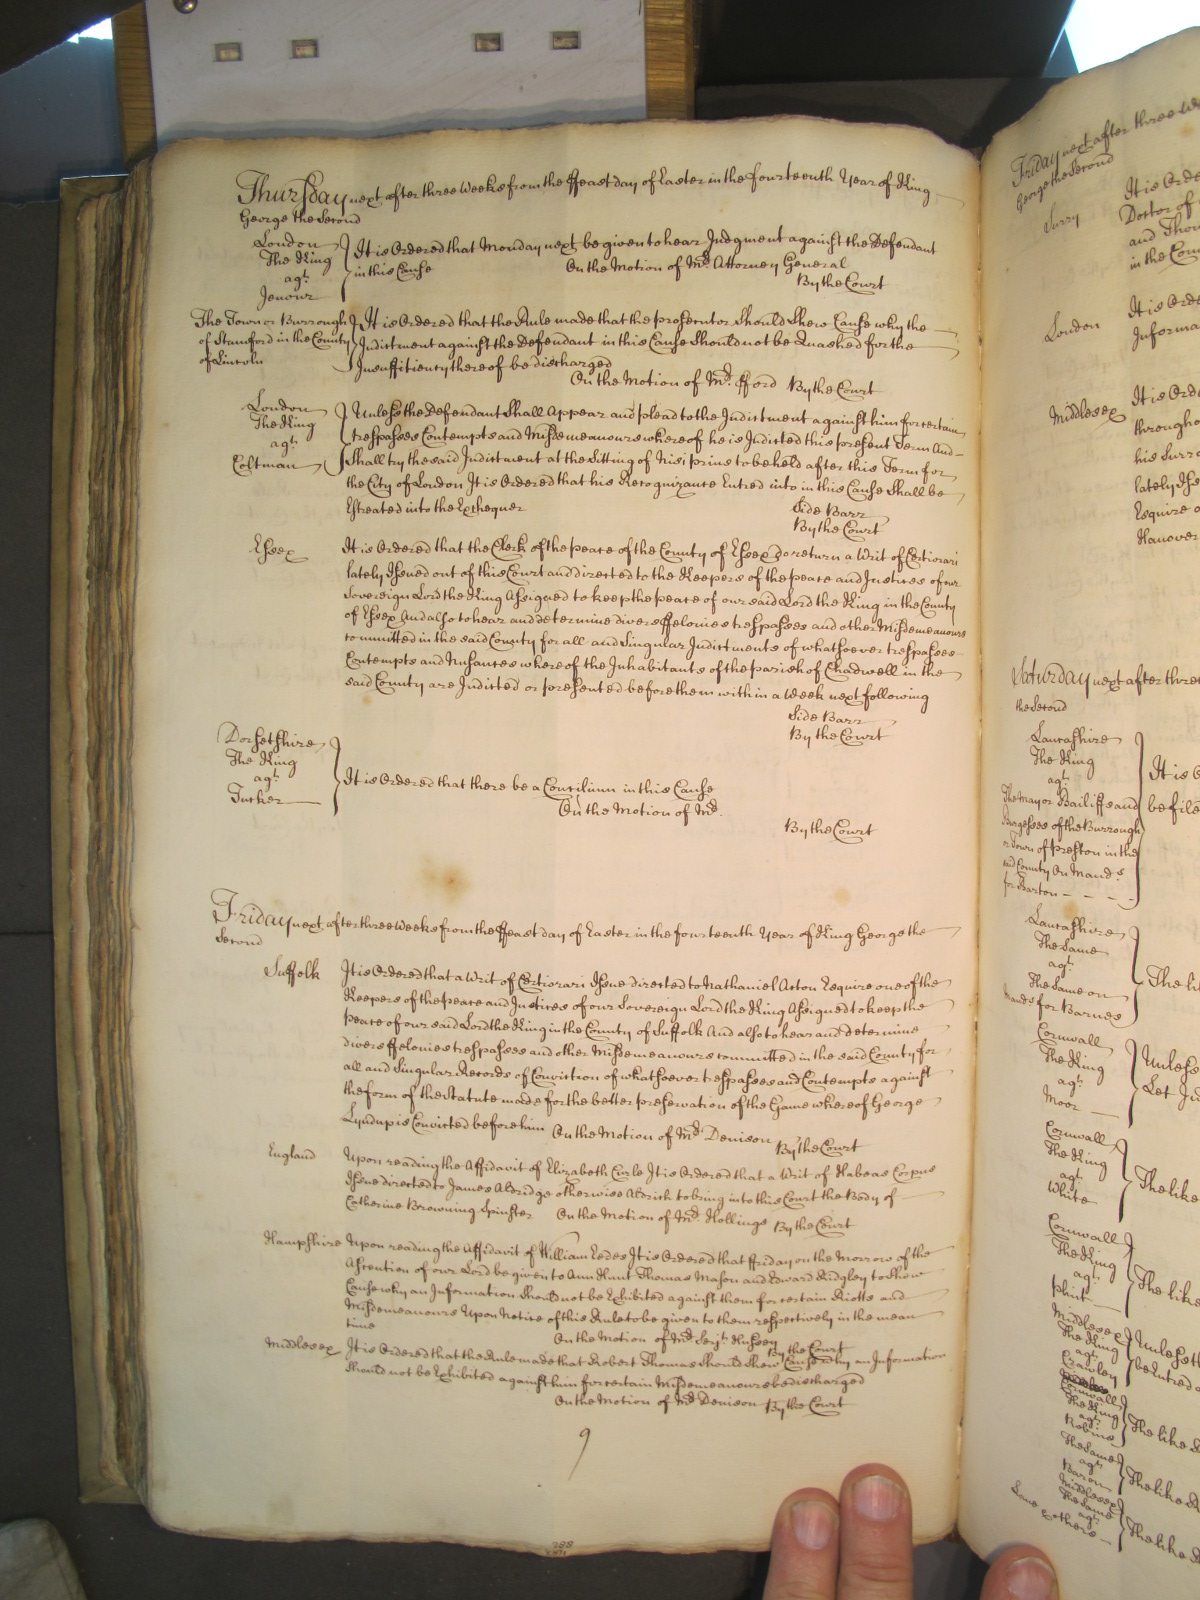 Thursday next after three Weeks from the ffeast day of Easter in the fourteenth Year of King
George the Second
London
The King
agt.
Jenour
It is Ordered that Monday next be given to hear Judgment against the Defendant
in this Cause On the Motion of Mr. Attorney General
By the Court
The Town or Burrough
of Stamford in the County
of Lincoln
It is Ordered that the Rule made that the prosecutor Should Shew Cause why the
Indictment against the Defendant in this Cause Should not be Quashed for the
Insuffitiency thereof be discharged
On the Motion of Mr. fford By the Court
London
The King
agt.
Coltman
Unless the Defendant Shall Appear and plead to the Indictment against him for certain
trespasses Contempts and Misdemeanours whereof he is Indicted this present Term And
Shall try the said Indictment at the Sitting of Nisi prius to be held after this Term for
the City of London It is Ordered that his Recognizance Entred into in this Cause Shall be
Estreated into the Exchequer
Side Barr
By the Court
Essex
It is Ordered that the Clerk of the peace of the County of Essex do return a Writ of Certiorari
lately Issued out of this Court and directed to the Keepers of the peace and Justices of our
Sovereign Lord the King Assigned to keep the peace of our said Lord the King in the County
of Essex And also to hear and determine divers ffelonies trespasses and other Misdemeanours
committed in the said County for all and Singular Indictments of whatsoever trespasses
Contempts and Nusances whereof the Inhabitants of the parish of Chadwell in the
said County are Indicted or presented before them within a Week next following
Side Barr
By the Court
Dorsetshire
The King
agt.
Tucker
It is Ordered that there be a Concilium in this Cause
On the Motion of Mr.
By the Court
Friday next after three Weeks from the ffeast day of Easter in the fourteenth Year of King George the
Second
Suffolk
It is Ordered that a Writ of Certiorari Issue directed to Nathaniel Acton Esquire one of the
Keepers of the peace and Justices of our Sovereign Lord the King Assigned to keep the
peace of our said Lord the King in the County of Suffolk And also to hear and determine
divers ffelonies trespasses and other Misdemeanours committed in the said County for
all and Singular Records of Conviction of whatsoever trespasses and Contempts against
the form of the Statute made for the better preservation of the Game whereof George
Lyndup is Convicted before him On the Motion of Mr. Denison By the Court
England
Upon reading the Affidavit of Elizabeth Curle It is Ordered that a Writ of Habeas Corpus
Issue directed to James Aldridge otherwise Aldrich to bring into this Court the Body of
Catherine Browning Spinster On the Motion of Mr. Hollings By the Court
Hampshire
Upon reading the Affidavit of William Eedes It is Ordered that ffriday on the Morrow of the
Ascention of our Lord be given to Ann Hunt Thomas Mason and Edward Ridgley to Shew
Cause why an Information Should not be Exhibited against them for certain Riotts and
Misdemeanours Upon Notice of this Rule to be given to them respectively in the mean
time
On the Motion of Mr. Serjt. Hussey
By the Court
Middlesex
It is Ordered that the Rule made that Robert Thomas Should Shew Cause why an Information
Should not be Exhibited against him for certain Misdemeanours be discharged
On the Motion of Mr. Denison By the Court
9
Friday next after three
George the Second
Surry
It is Orde
Doctor of
and Tho
in the Cou
London
It is Orde
Informa
Middlesex
It is Orde
througho
his Surr
lately Iss
Esquire o
Hanover
Saturday next after three
the Second
Lancashire
The King
agt.
The Mayor Bailiffs and
Burgesses of the Burrough
or Town of Preston in the
said County On Mands.
for Barton
It is O
be file
Lancashire
The Same
agt.
The Same on
Mands for Barnes
The li
Cornwall
The King
agt.
Moor
Unless
Let Ju
Cornwall
The King
agt.
White
The like
Cornwall
The King
agt.
The like
Middlesex
The King
agt.
Crawley
Unless
be Entred
Cornwall
The King
agt.
Robins
The like
The Same
agt.
Baron
The like
Middlesex
The Same
agt.
Lane & others
The like